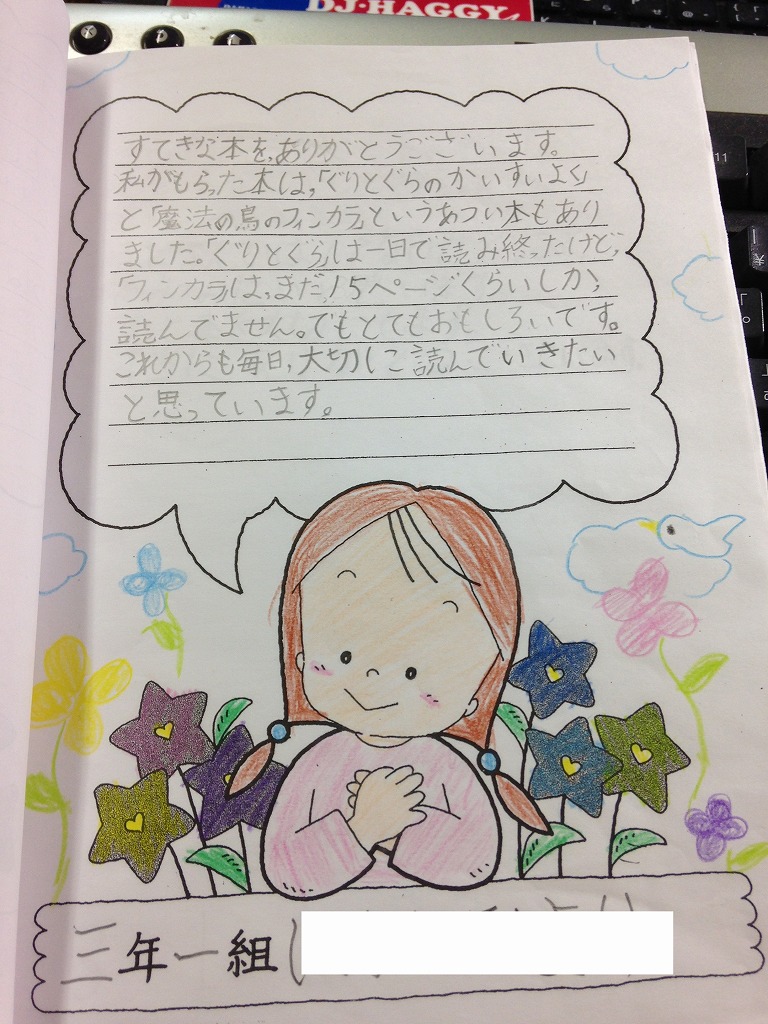 DJ-HAGGY
すてきな本を、ありがとうございます。
私がもらった本は、「ぐりとぐらのかいすいよく」
と「魔法の鳥のフィンカラ」というあつい本もあり
ました。「ぐりとぐら」は一日で読み終ったけど、
「フィンカラ」は、まだ15ページくらいしか、
読んでません。でもとてもおもしろいです。
これからも毎日、大切に読んでいきたい
と思っています。
三年一組